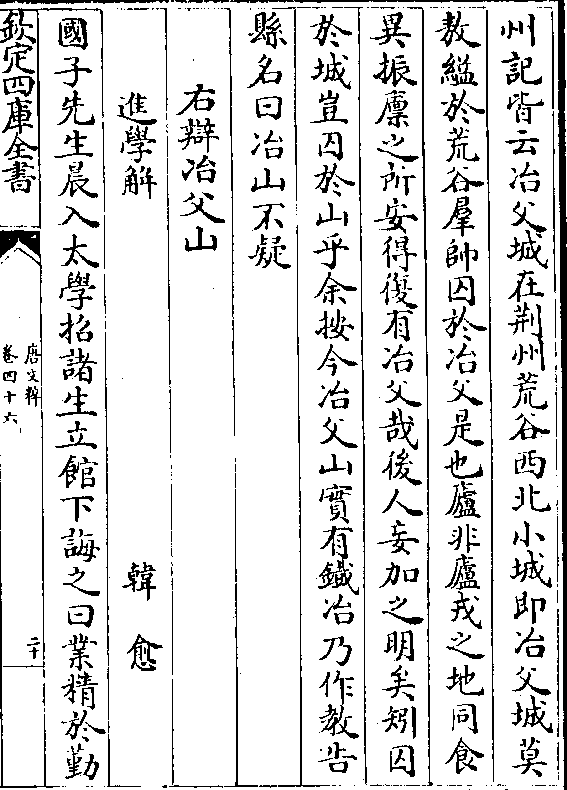 州記皆云冶父城在荆州荒谷西北小城即冶父城莫
敖縊於荒谷羣帥囚於冶父是也廬非廬戎之地同食
異振廪之所安得復有冶父哉後人妄加之明矣矧囚
於城豈囚於山乎余按今冶父山實有鐵冶乃作教告
縣名曰冶山不疑
右辯冶父山
進學解 韓愈
國子先生晨入太學招諸生立館下誨之曰業精於勤
欽定四庫全書
唐文粹
卷四十六
二十